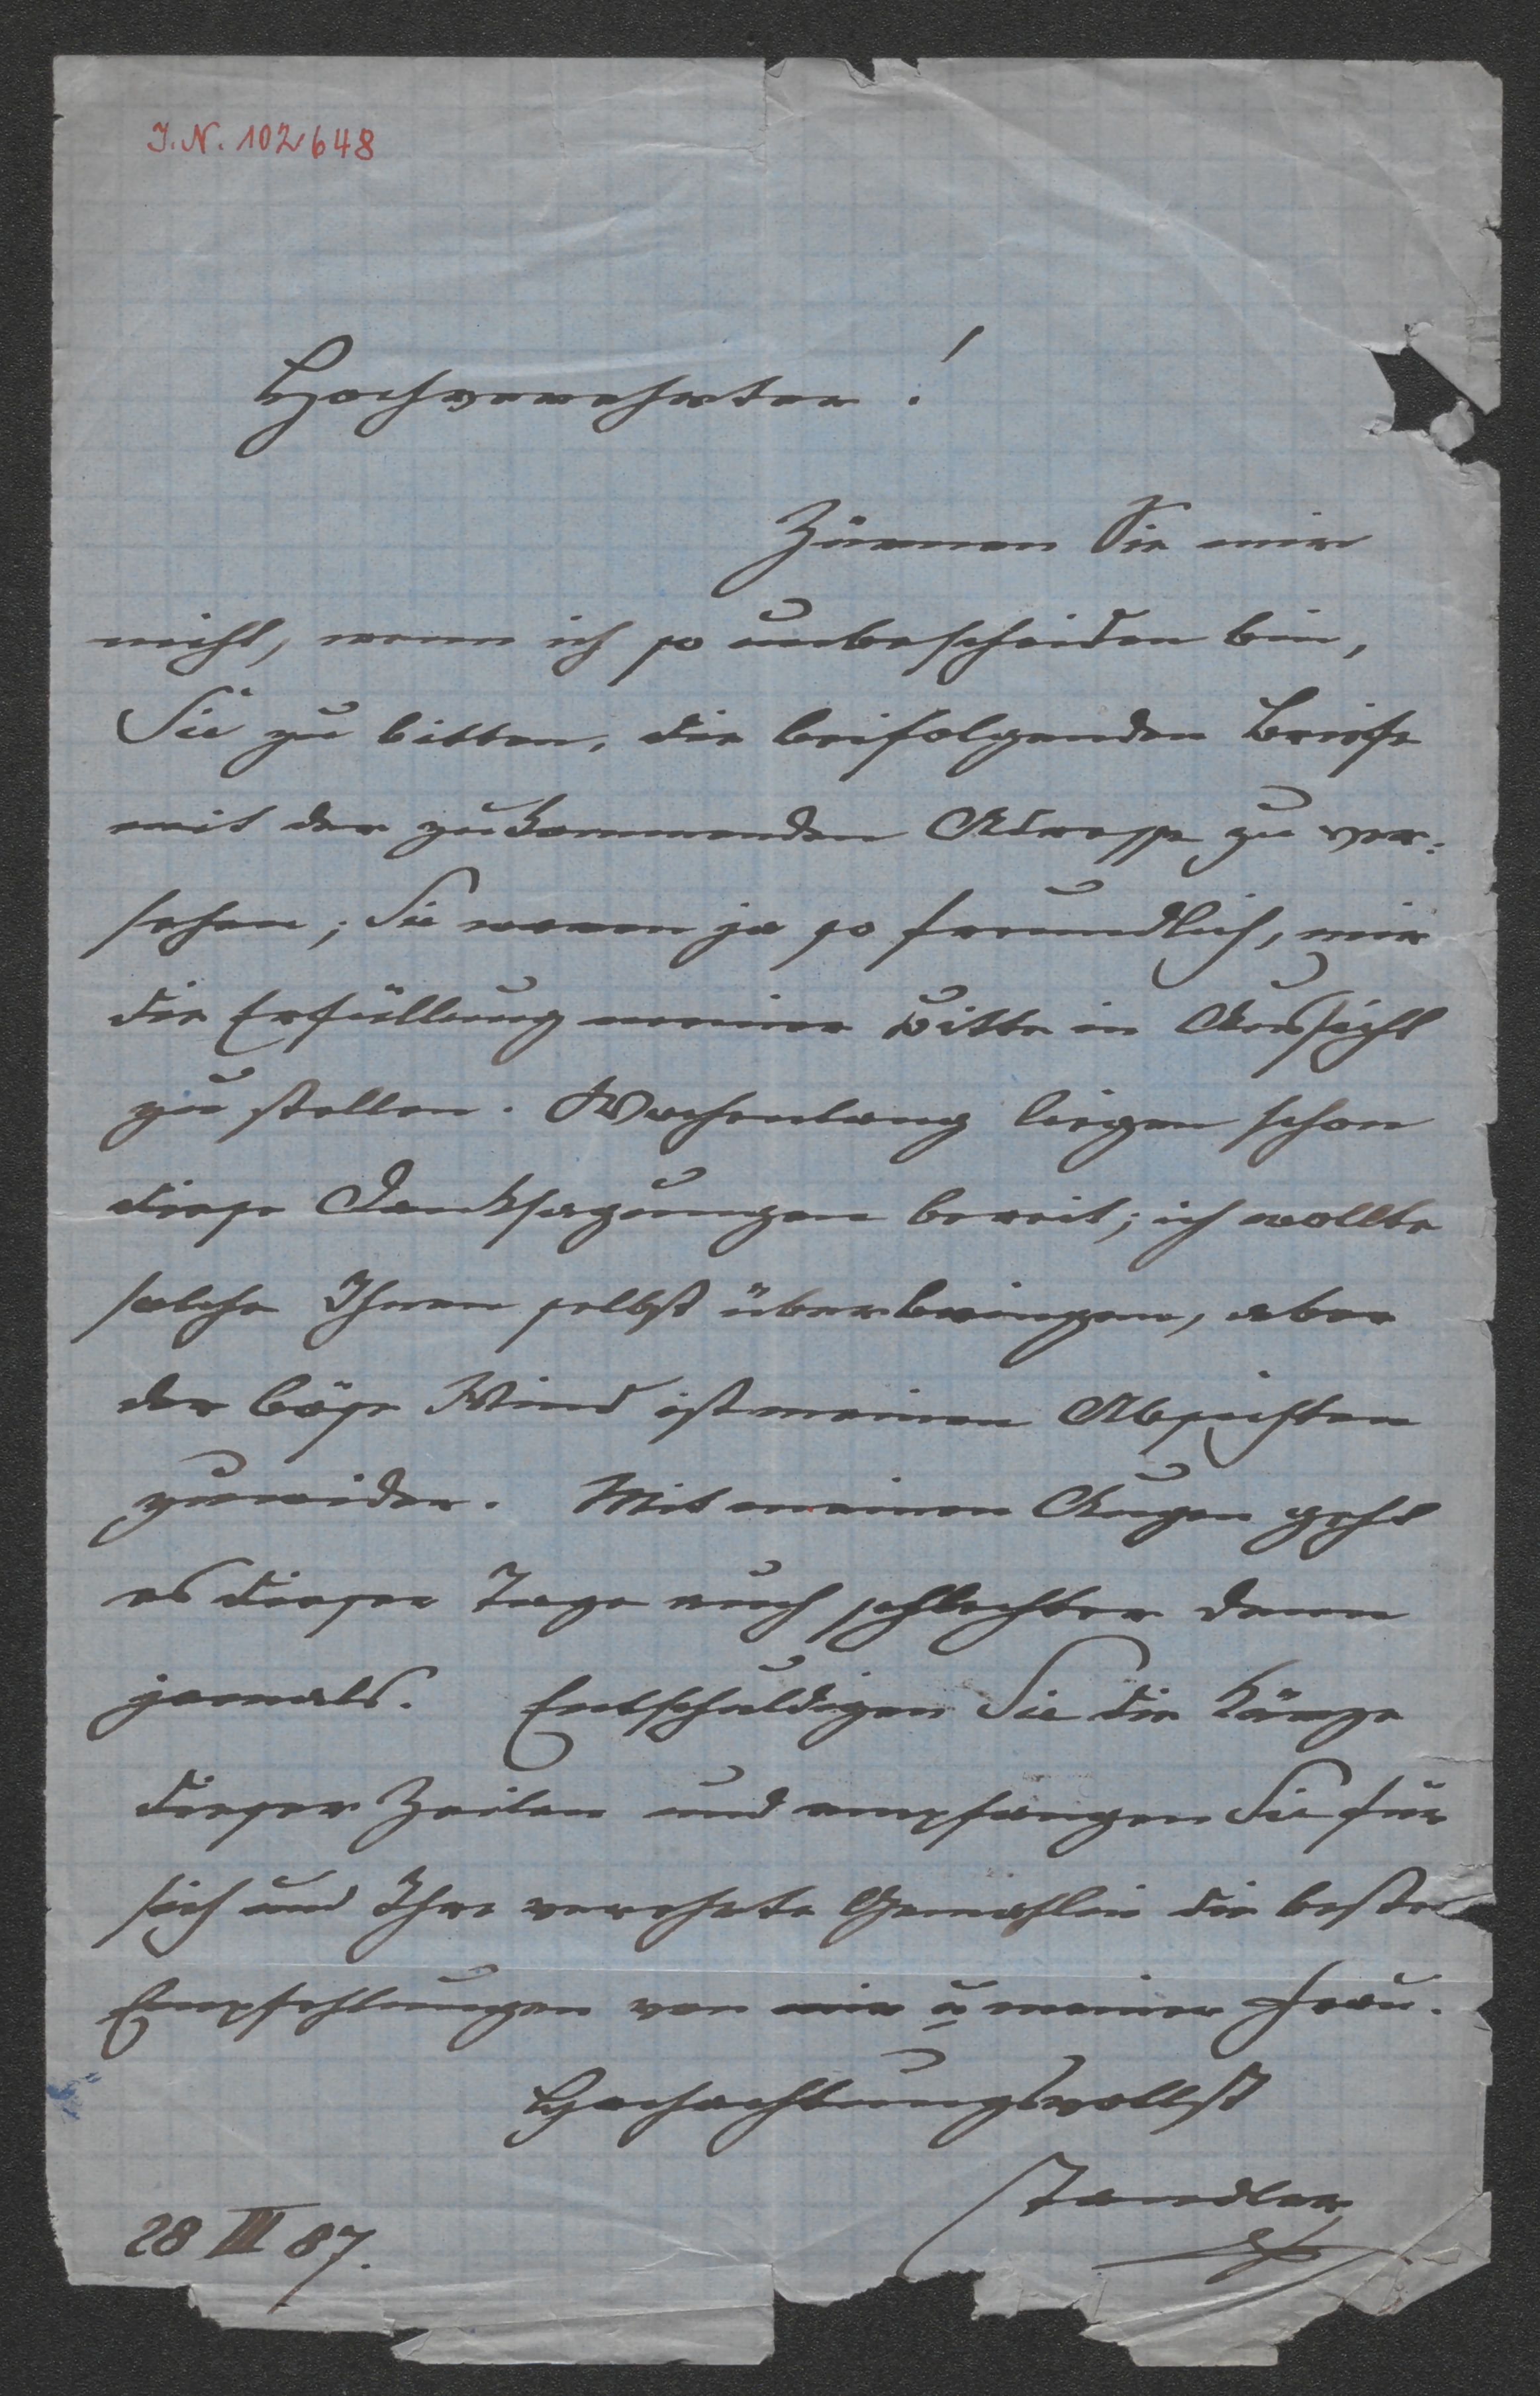 I.N. 102648
Hochverehrter!
Zürnen Sie mir
nicht, wenn ich so unbescheiden bin,
Sie zu bitten, die beifolgenden Briefe
mit der zukommenden Adresse zu ver-
sehen; Sie waren ja so freundlich, mir
die Erfüllung meiner Bitte in Aussicht
zu stellen. Wochenlang liegen schon
diese Danksagungen bereit; ich wollte
solche Ihnen selbst überbringen, aber
der böse Wind ist meinen Absichten
zuwider. Mit meinen Augen geht
es dieser Tage auch schlechter denn
jemals. Entschuldigen Sie die Länge
dieser Zeilen und empfangen Sie für
sich und Ihre verehrte Gemahlin die besten
Empfehlungen von mir u meiner Frau.
Hochachtungsvollst
Tandler
28 III 87.